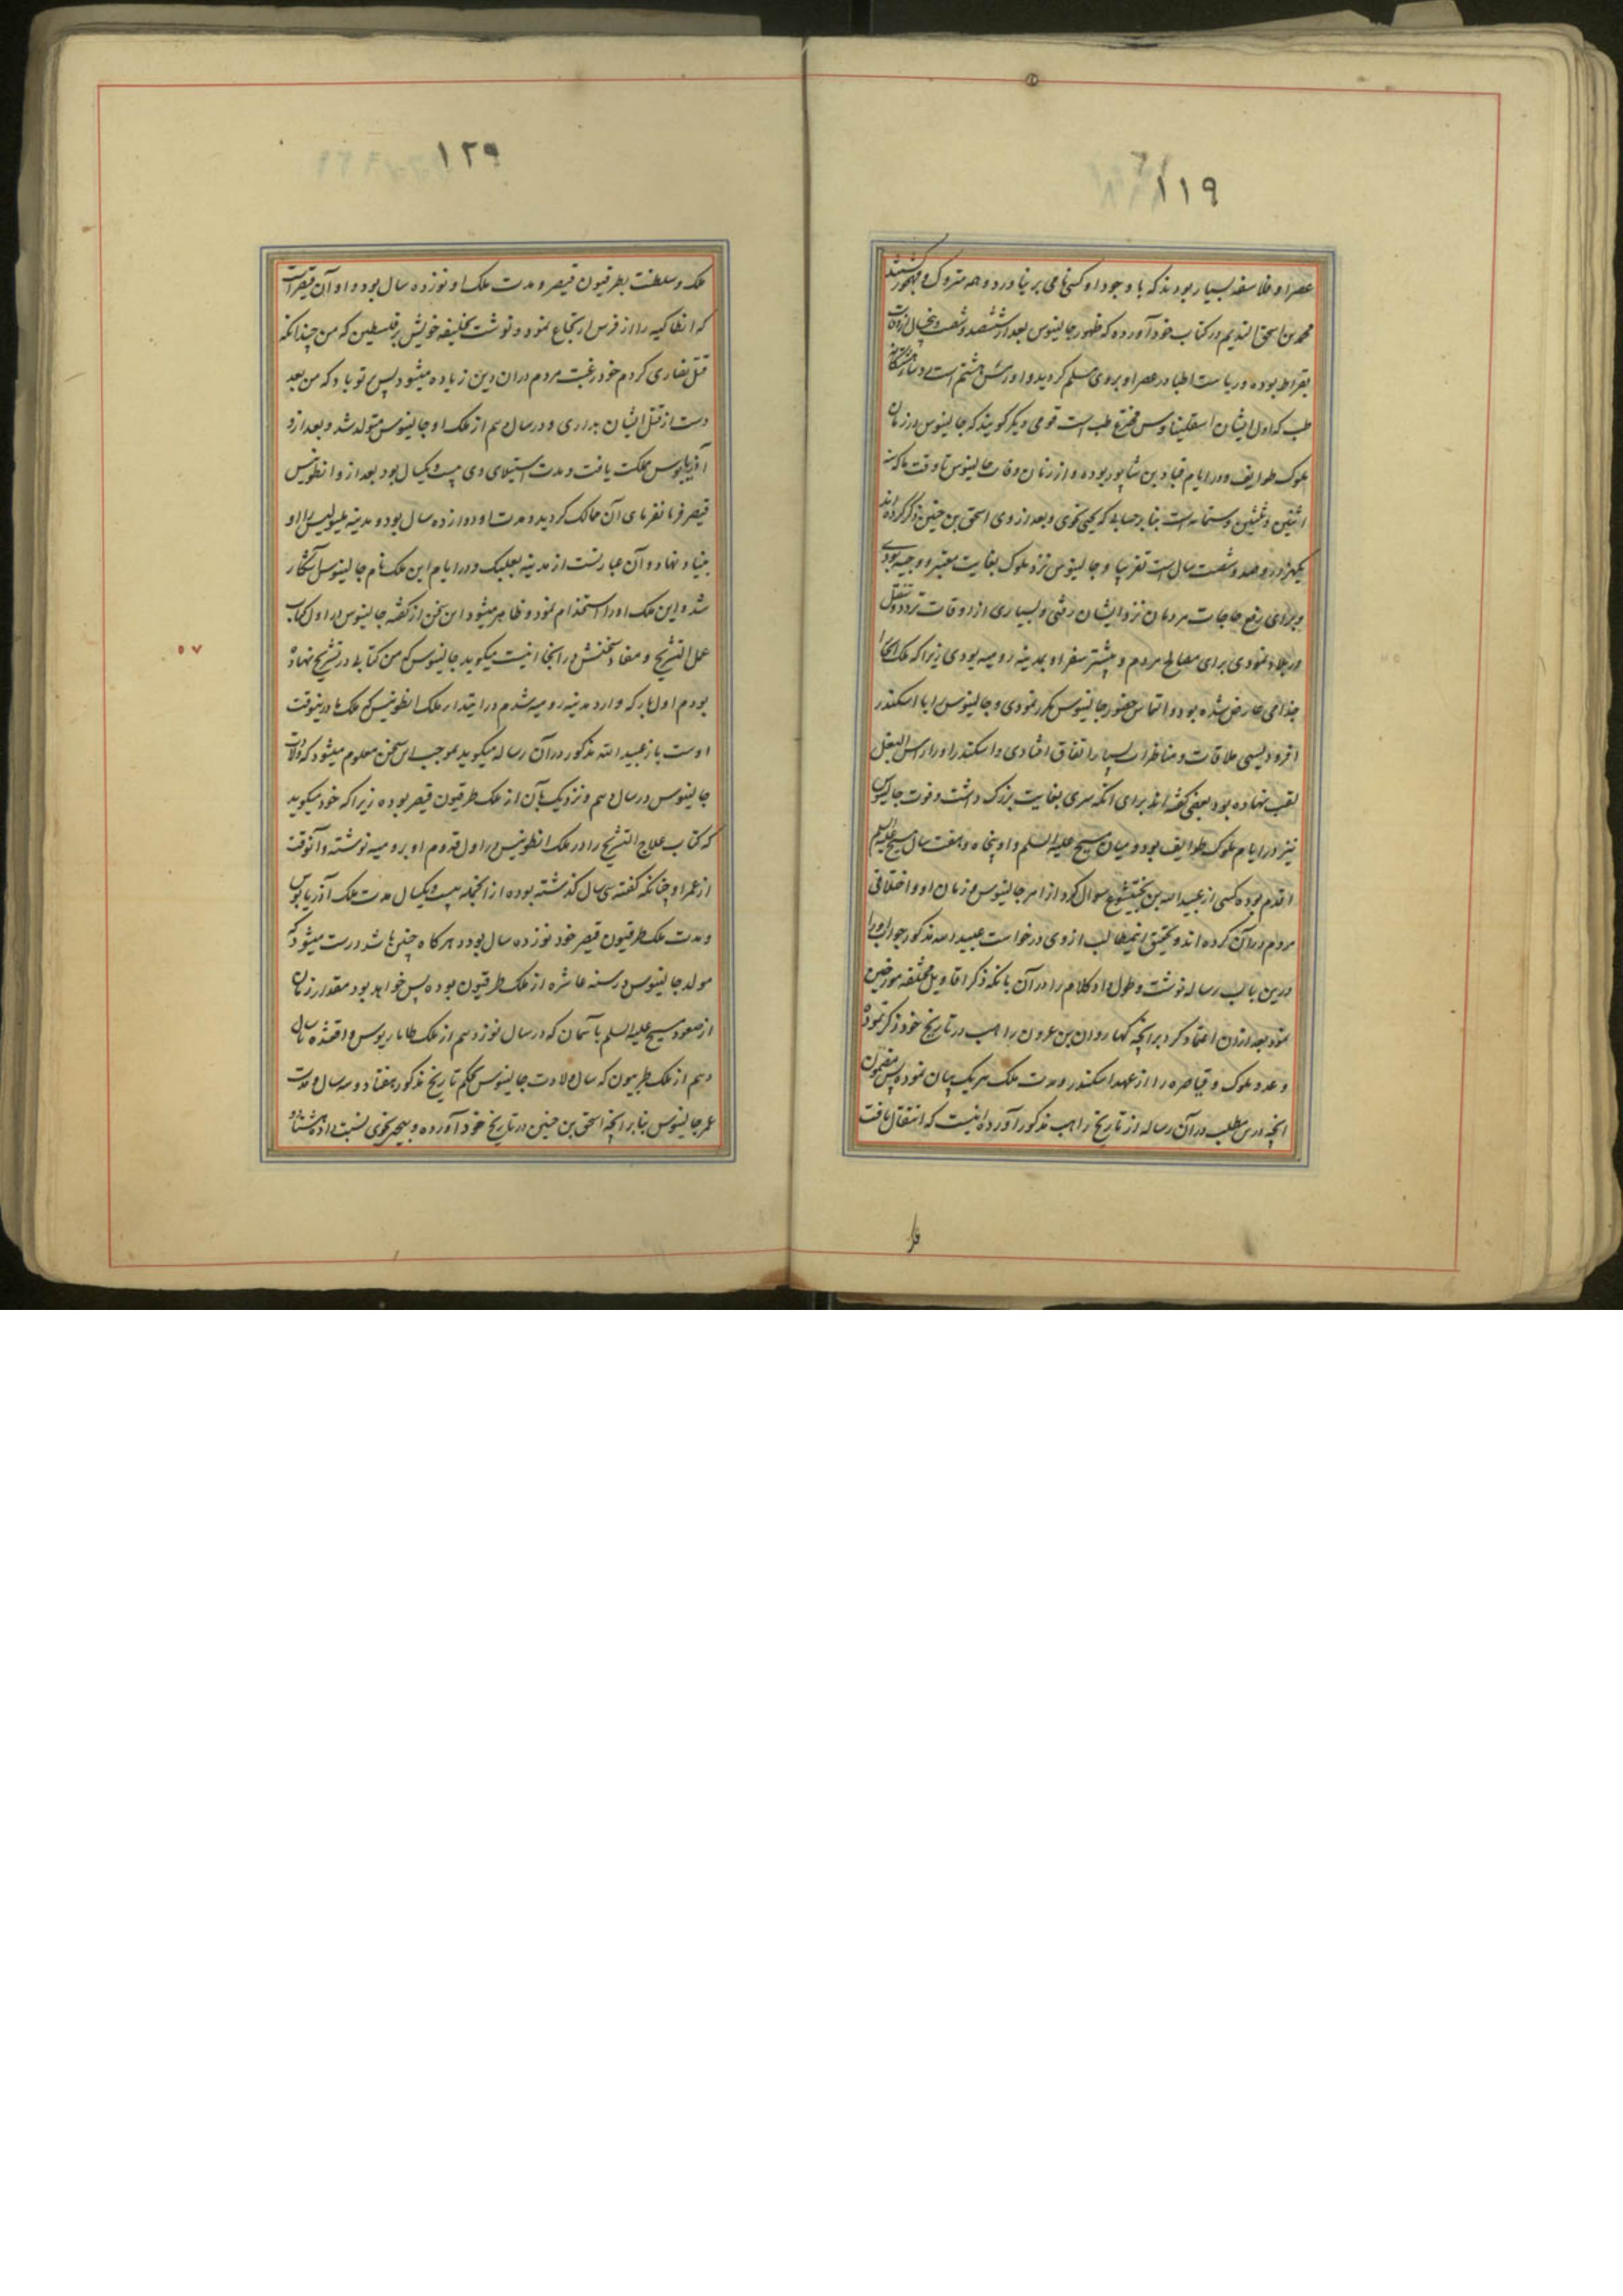 ١١٩
عصر او فلاسفه بسیار بودند که با وجود او کسی نامی بر نیاورد و همه متروک و مهجور گشتند
محمد بن اسحق الندیم در کتاب خود آورده که ظهور جالینوس بعد از ششصد و شصت و پنجسال از وفات
بقراط بوده و ریاست اطبا در عصر او بر وی مسلم گردید و او رئیس هشتم است
طب که اول ایشان اسقلیناوس مخترع طب است قومی دیگر گویند که جالینوس در زمان
ملوک طوایف و در ایام قباد بن شاپور بوده و از زمان وفات جالینوس تا وقت ما که سنه
اثنین و ثلثین و ستمائه است بنا بر حسابی که یحیی نحوی و بعد از وی اسحق بن حنین ذکر کرده‌اند
یکهزار و صد و شصت سال است تقریبا و جالینوس نزد ملوک بغایت معتبر و وجیه بودی
و برای رفع حاجات مردمان نزد ایشان رفتی و بسیاری از اوقات تردد و تنقل
در بلاد نمودی برای مصالح مردم و بیشتر سفر او بمدینه رومیه بودی زیرا که ملک انجا را
جذامی عارض شده بود و التماس حضور جالینوس مکرر نمودی و جالینوس را با اسکندر
افرودیسی ملاقات و مناظرات بسیار اتفاق افتادی و اسکندر او را راس البغل
لقب نهاده بود بعضی گفته‌اند برای آنکه سری بغایت بزرگ داشت و فوت جالینوس
نیز در ایام ملوک طوایف بود و میان مسیح علیه السلم و او پنجاه و هفت سال مسیح علیه السلم
اقدم بوده کسی از عبید الله بن بختیشوع سوال کرد از امر جالینوس و زمان او و اختلافی
مردم در آن کرده‌اند و تحقیق این مطالب از وی درخواست عبید الله مذکور جواب او را
درین باب رساله نوشت و طول داد کلام را در آن بانکه ذکر اقاویل مختلفه مورخین
نمود بعد از آن اعتماد کرد بر انچه هارون بن عزون راهب در تاریخ خود ذکر نموده
و عدد ملوک و قیاصره را از عهد اسکندر و مدت ملک هر یک بیان نموده پس مضمون
انچه درین مطلب در آن رساله از تاریخ راهب مذکور آورده اینست که انتقال یافت
١٢٩
ملک و سلطنت بطرقیون قیصر و مدت ملک او نوزده سال بود و او آن قیصر است
که انطاکیه را از فرس ارتجاع نمود و نوشت بخلیفه خویش بر فلسطین که من چندانکه
قتل نصاری کردم خود رغبت مردم در آن دین زیاده میشود پس بر تو باد که من بعد
دست از قتل ایشان بداری و در سال دهم از ملک او جالینوس متولد شد و بعد ازو
آذریانوس مملکت یافت و مدت استیلای وی بیست و یکسال بود بعد ازو انطونیس
قیصر فرمانفرمای آن ممالک گردید و مدت او دوازده سال بود و مدینه ایلیوپلیس را او
بنیاد نهاد و آن عبارتست از مدینه بعلبک و در ایام این ملک نام جالینوس آشکار
شد و این ملک او را استخدام نمود و ظاهر میشود این سخن از گفته جالینوس در اول کتاب
عمل التشریح و مفاد سخنش در انجا اینست میگوید جالینوس که من کتابی در تشریح نهاده
بودم اول بار که وارد مدینه رومیه شدم در ابتدا ملک انطونیس که ملک ما درینوقت
اوست باز عبید الله مذکور در آن رساله میگوید بموجب این سخن معلوم میشود که ولادت
جالینوس در سال دهم و نزدیک بآن از ملک طرقیون قیصر بوده زیرا که خود میگوید
که کتاب علاج التشریح را در ملک انطونیس در اول قدوم او برومیه نوشته و آنوقت
از عمر او چنانکه گفته سی سال گذشته بوده از انجمله بیست و یکسال مدت ملک آذریانوس
و مدت ملک طرقیون قیصر خود نوزده سال بود و هر گاه چنین باشد درست میشود که
مولد جالینوس در سنه عاشره از ملک طرقیون بوده پس خواهد بود مقدار زمان
از صعود مسیح علیه السلم بآسمان که در سال نوزدهم از ملک طاباریوس واقعشده تا سال
دهم از ملک طریبیون که سال ولادت جالینوس بحکم تاریخ مذکور هفتاد و سه سال و مدت
عمر جالینوس بنا بر انچه اسحق بن حنین در تاریخ خود آورده و بیحیی نحوی نسبت داده هشتاد و
٥٧